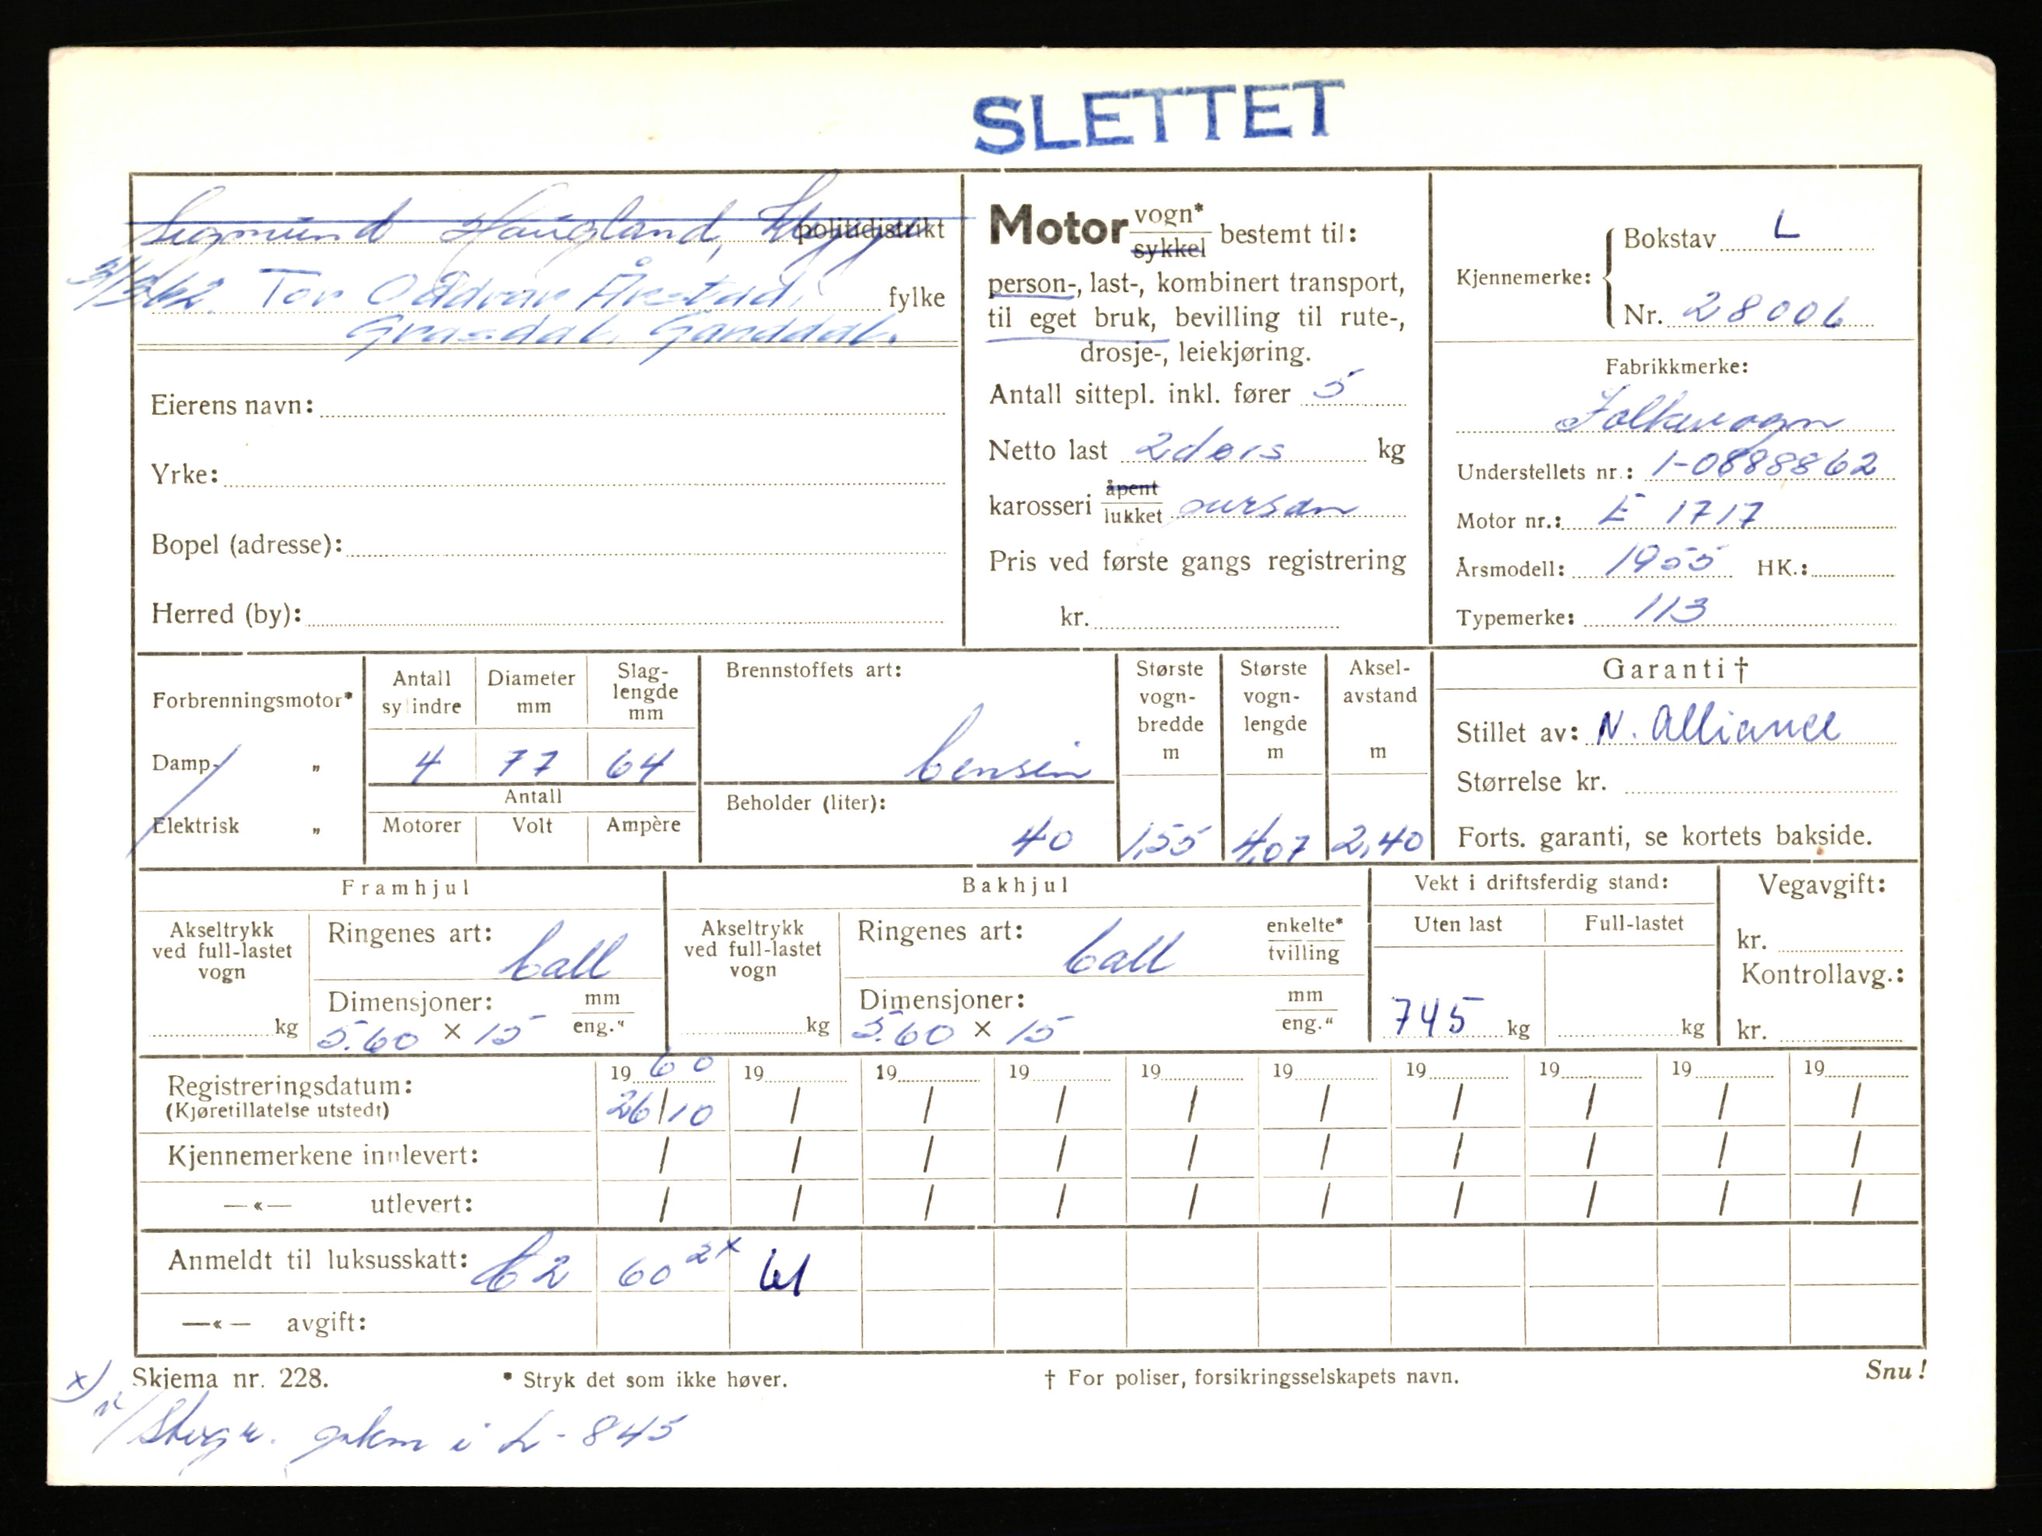 SLETTET
Sigmund Haugland, politidistrikt
31/3 62. Tor Oddvar Årstad, fylke
Grasdal, Ganddal.
Eierens navn:
Yrke:
Bopel (adresse):
Herred (by):
Motor vogn* sykkel bestemt til:
person-, last-, kombinert transport,
til eget bruk, bevilling til rute-,
drosje-, leiekjøring.
Antall sittepl. inkl. fører 5
Netto last 2 dørs kg
karosseri åpent lukket
Pris ved første gangs registrering
kr.
Kjennemerke: Bokstav L
Nr. 28006
Fabrikkmerke:
Folkevogn
Understellets nr.: 1-0888862
Motor nr.: E 1717
Årsmodell: 1955 HK.:
Typemerke: 113
Forbrenningsmotor*
Damp- „
Elektrisk „
Antall sylindre Diameter mm Slag-lengde mm
4 77 64
Antall
Motorer Volt Ampère
Brennstoffets art:
bensin
Beholder (liter):
40
Største vogn-bredde m
1,55
Største vogn-lengde m
4,07
Aksel-avstand m
2,40
Garanti †
Stillet av: N. Alliance
Størrelse kr.
Forts. garanti, se kortets bakside.
Framhjul
Akseltrykk ved full-lastet vogn
kg
Ringenes art:
ball
Dimensjoner: mm eng."
5.60 × 15
Bakhjul
Akseltrykk ved full-lastet vogn
kg
Ringenes art: enkelte* tvilling
ball
Dimensjoner: mm eng."
5.60 × 15
Vekt i driftsferdig stand:
Uten last Full-lastet
745 kg kg
Vegavgift:
kr.
Kontrollavg.:
kr.
Registreringsdatum: 19 60 19 19 19 19 19 19 19 19 19
(Kjøretillatelse utstedt) 26/10 / / / / / / / / /
Kjennemerkene innlevert: / / / / / / / / / /
—«— utlevert: / / / / / / / / / /
Anmeldt til luksusskatt: 62 60 2x 61
—«— avgift:
Skjema nr. 228. * Stryk det som ikke høver. † For poliser, forsikringsselskapets navn. Snu!
x) i L- 845